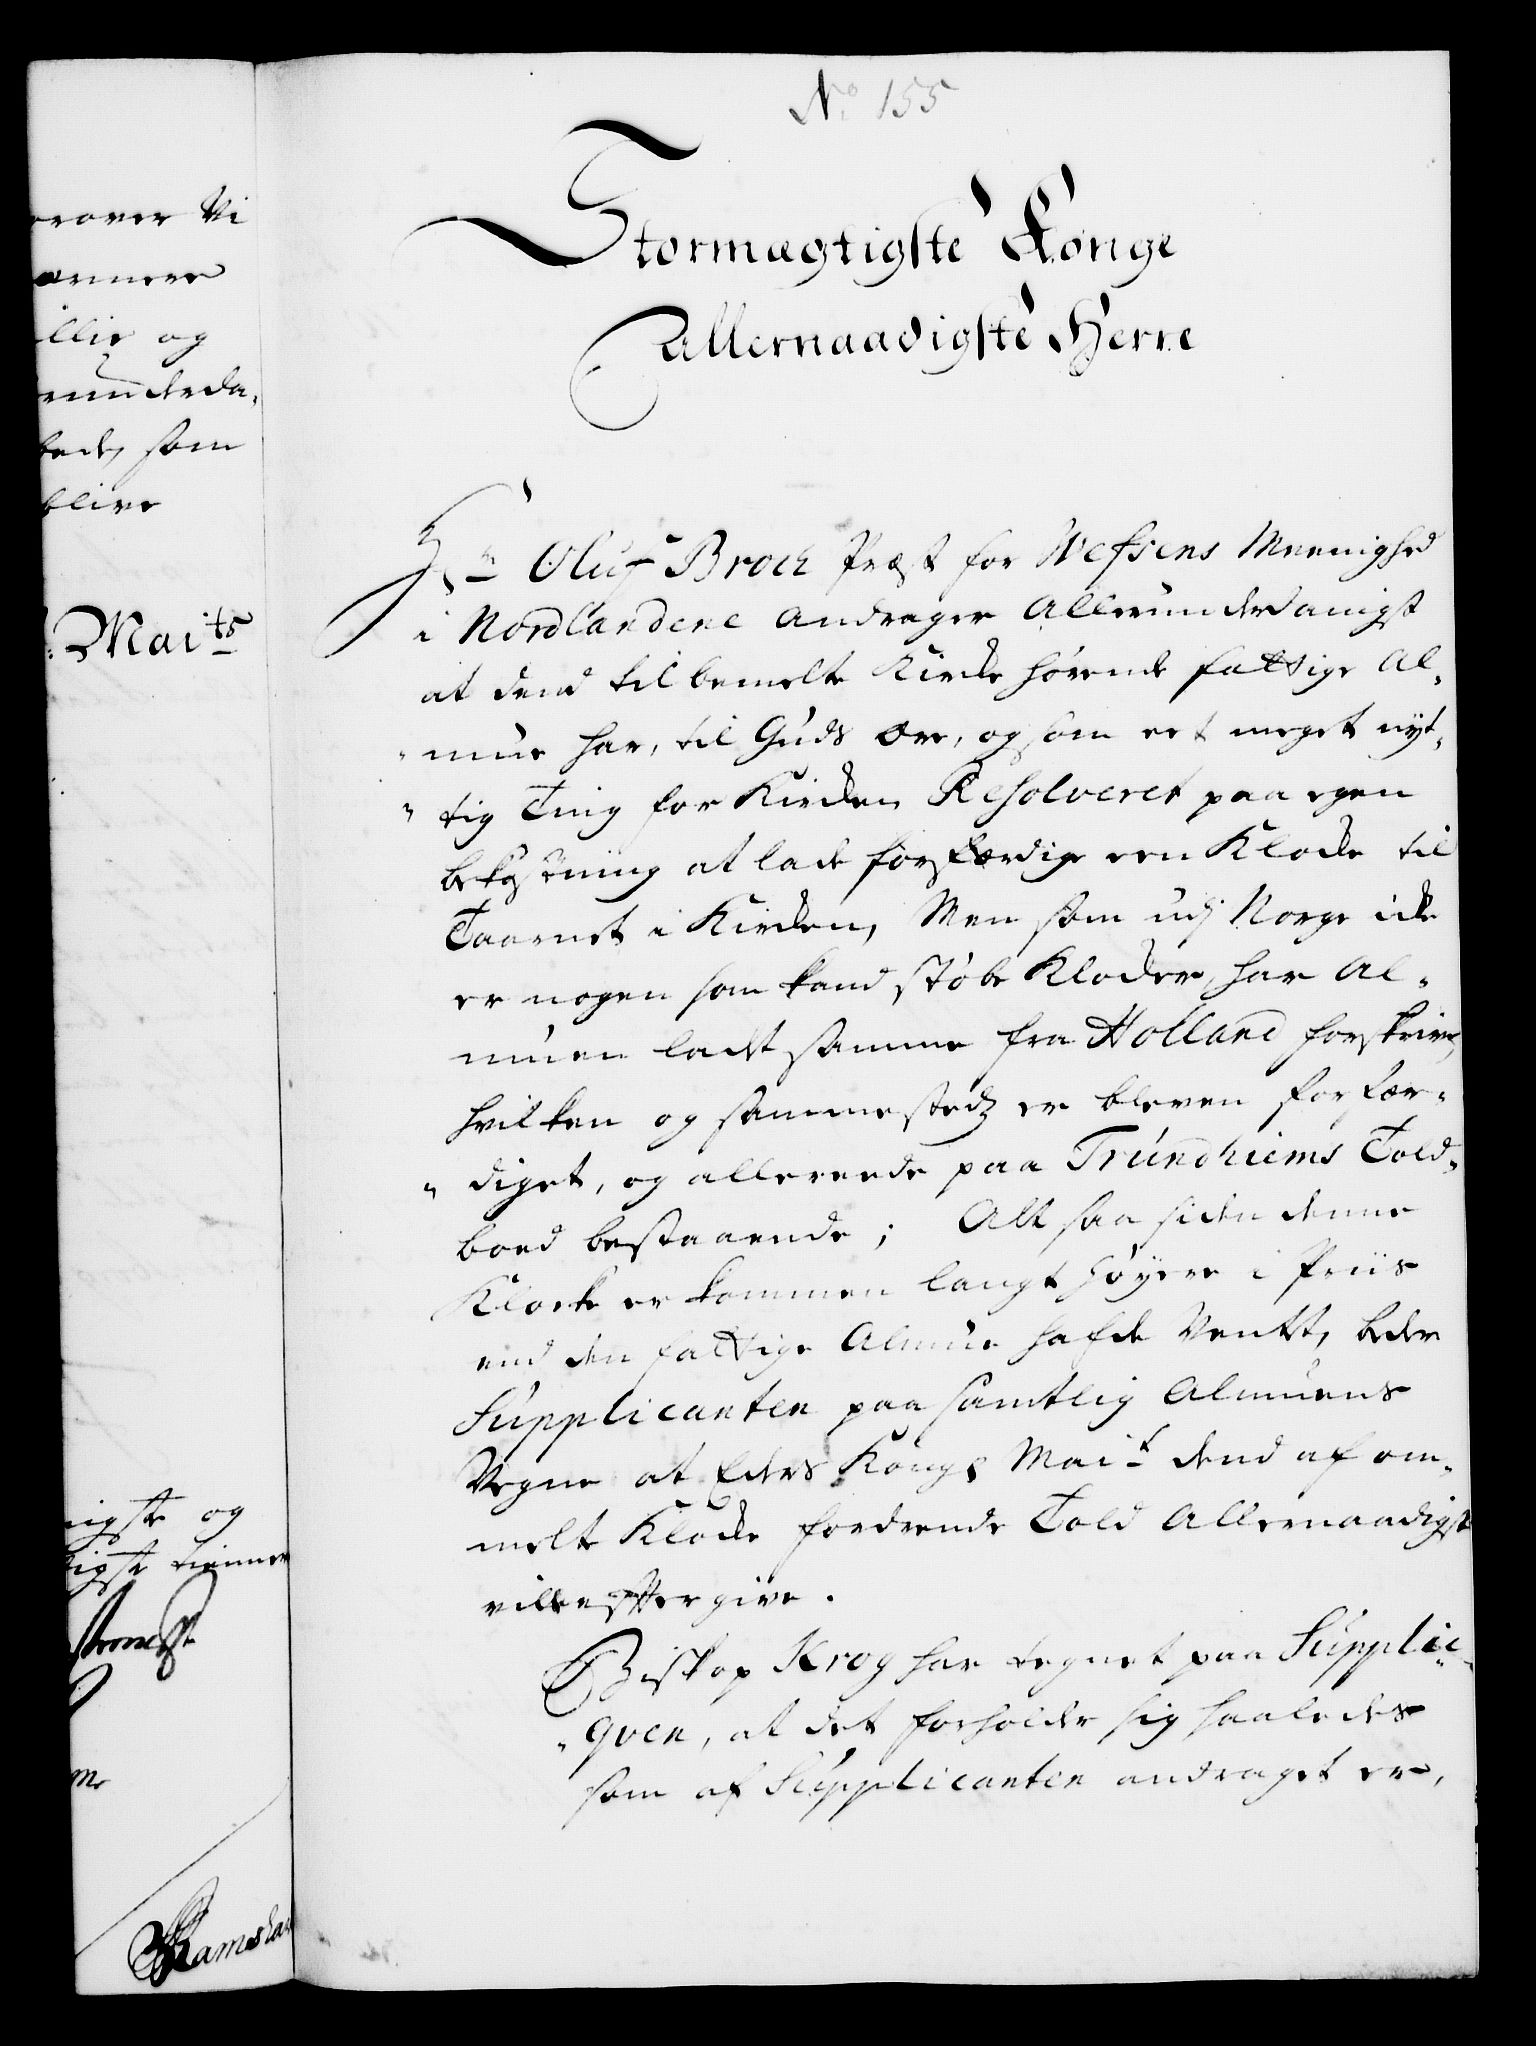 No 155
Stormægtigste Konge
Allernaadigste Herre
Hr Oluf Broch Præst for Wefsens Meenighed
i Nordlandene andrager Allerunderdanigst
at dend til bemelte Kircke hørende fattige Al-
mue har, til Guds ære, og som eet meget nyt-
tig Ting for Kircken Resolveret paa egen
bekostning at lade forfærdige een Klocke til
Taarnet i Kircken, Men som udj Norge icke
er nogen som kand støbe Klocker, har Al-
muen ladt samme fra Holland forskrive,
hvilken og sammestedz er bleven forfær-
diget, og allereede paa Trundhiems Told-
boed bestaaende; Alt saa siden denne
Klocke er kommen langt høyere i Priis
end den fattige Almue hafde Ventet, beder
Supplicanten paa samtlig Almuens
Vegne at Eders Kongl Mait dend af om-
melte Klocke fordrende Told Allernaadigst
ville efftergive.
Biskop Krog har tegnet paa Supplic-
qven, at det forholder sig saaledes
som af Supplicanten andraget er,
Vi
og
som
blive
Maits
og
tienner